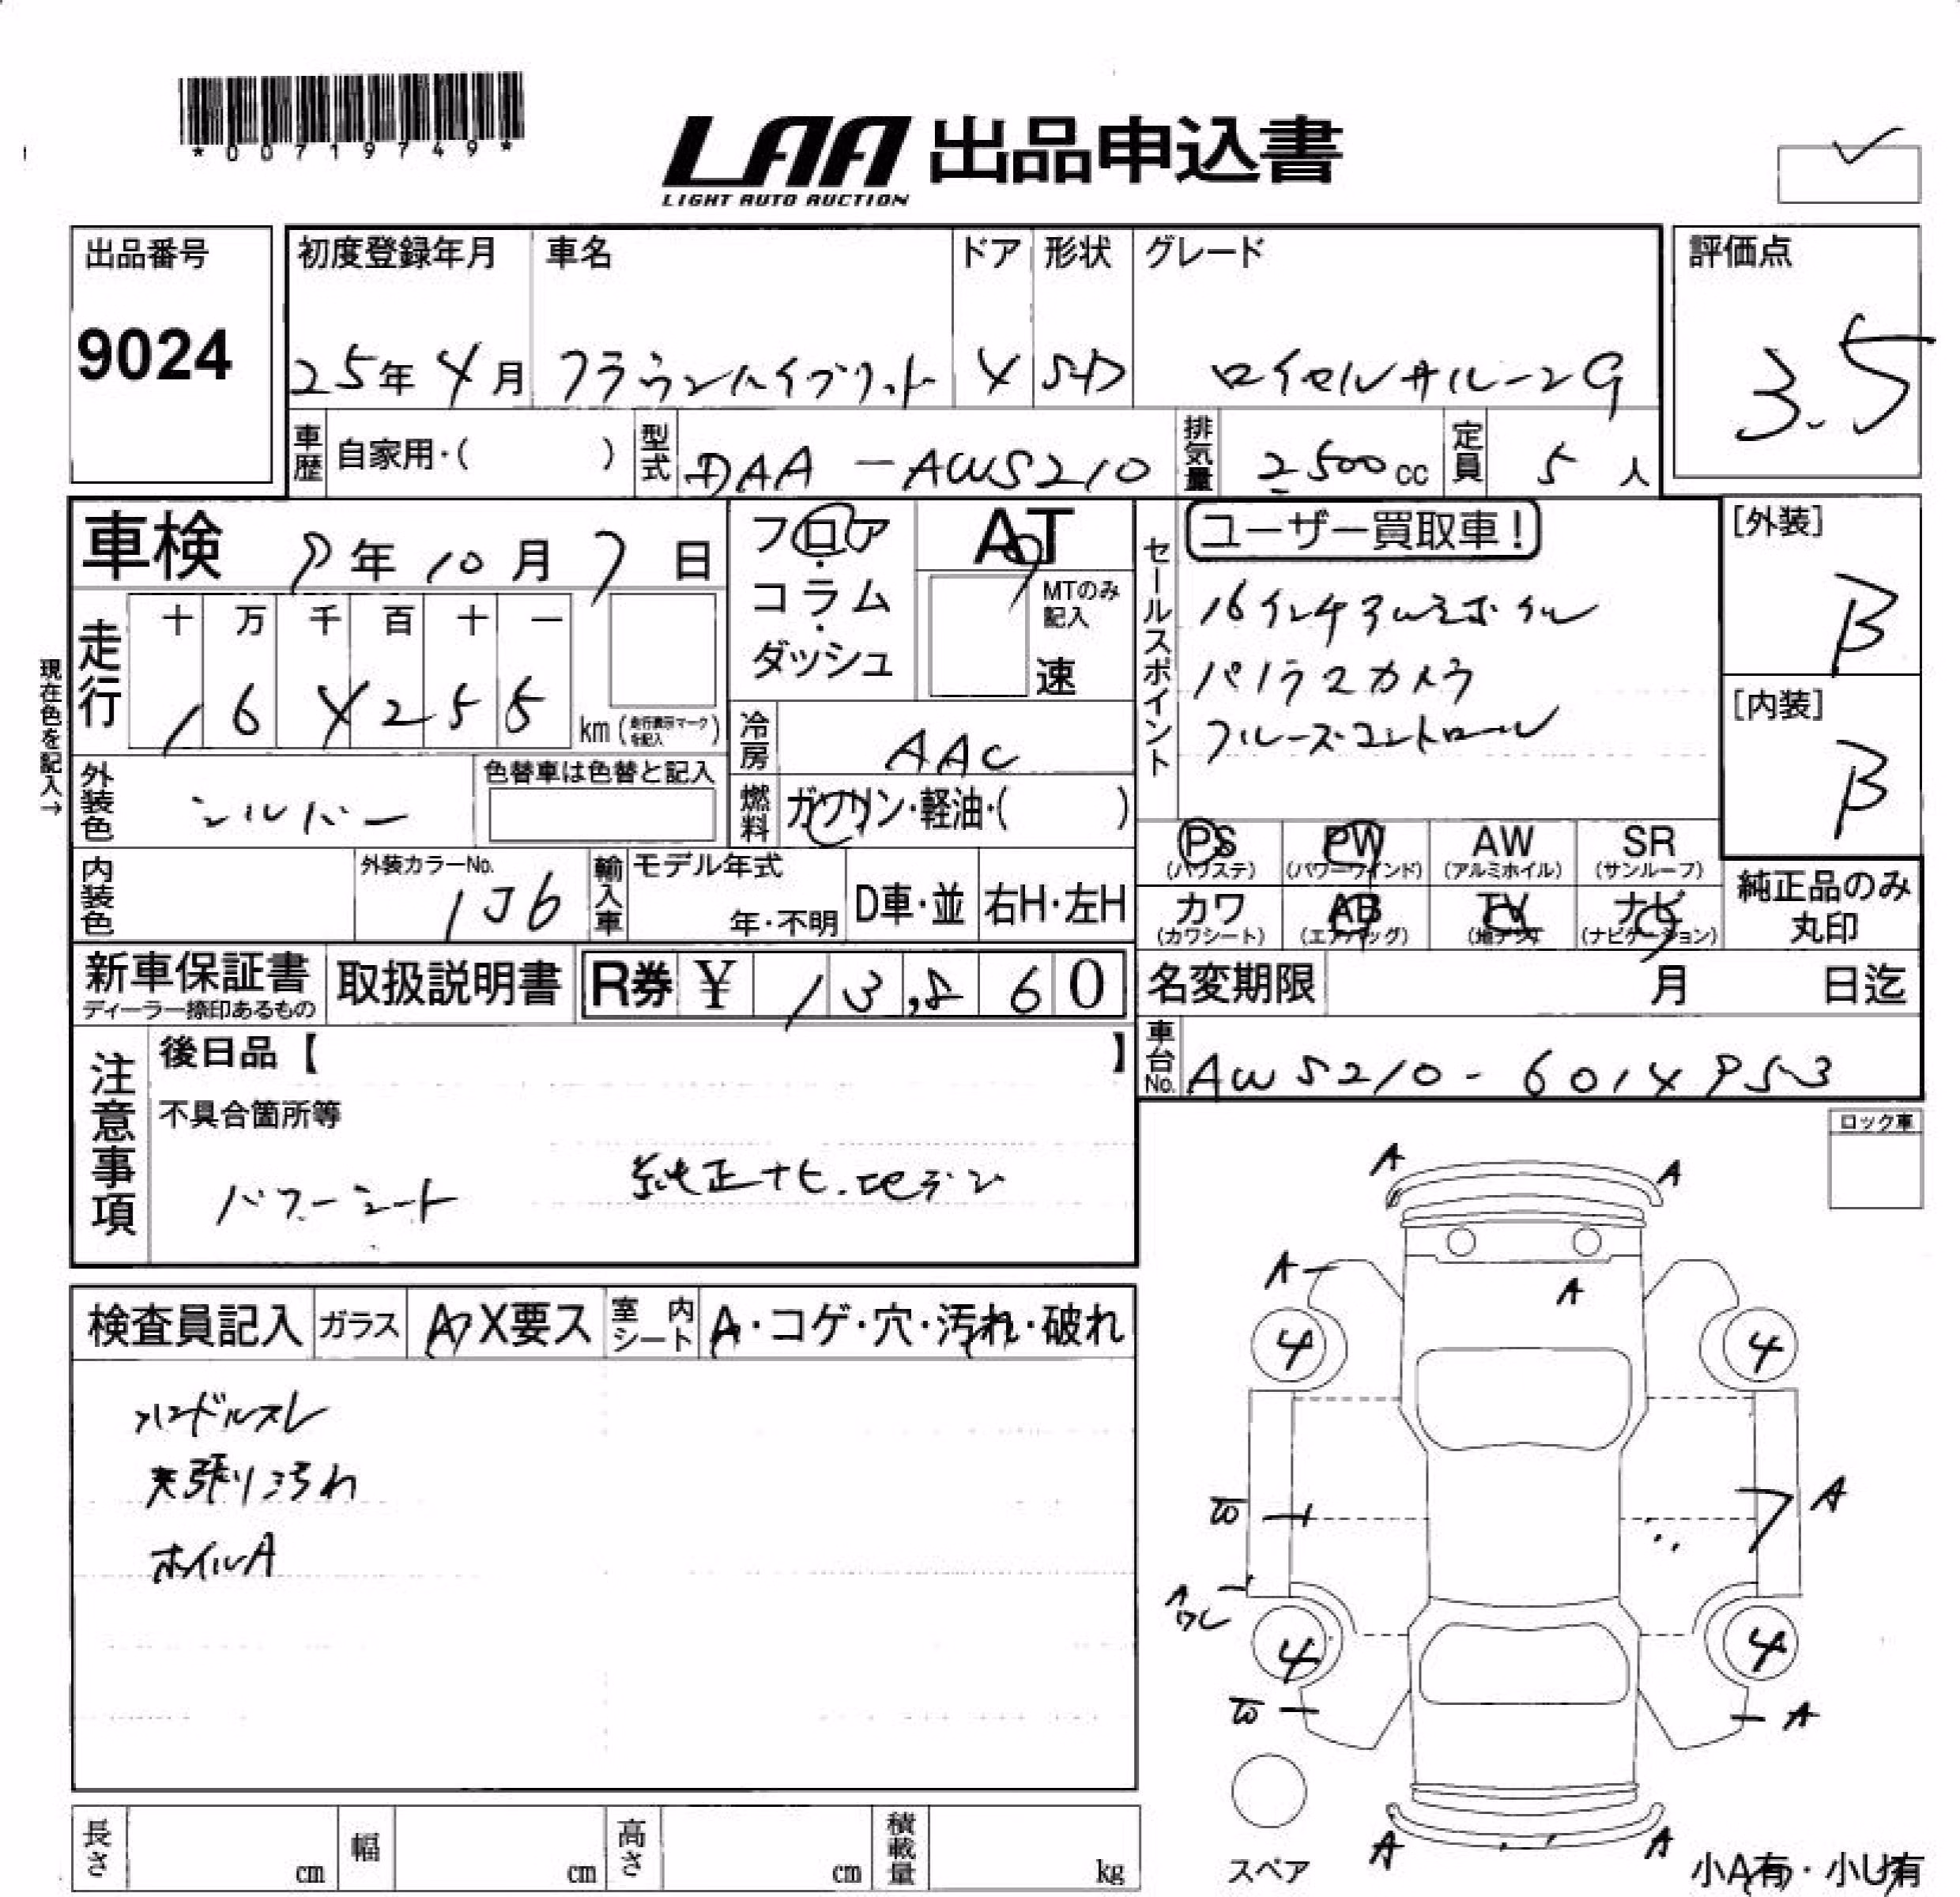 *00719749*
LAA 出品申込書
LIGHT AUTO AUCTION
出品番号
9024
初度登録年月
25年4月
車名
クラウンハイブリット
ドア
4
形状
SD
グレード
ロイヤルサルーンG
評価点
3.5
車歴 自家用・( )
型式 DAA-AWS210
排気量 2500cc
定員 5人
車検 9年10月7日
フロア・コラム・ダッシュ
AT
MTのみ記入
速
セールスポイント
ユーザー買取車!
16インチアルミホイル
バックカメラ
クルーズコントロール
[外装]
B
[内装]
B
現在色を記入→
走行
十 万 千 百 十 一
164255
km(走行表示マークを記入)
冷房 AAC
燃料 ガソリン・軽油・( )
外装色 シルバー
色替車は色替と記入
内装色
外装カラーNo.
1J6
輸入車
モデル年式
年・不明
D車・並
右H・左H
PS (パワステ)
PW (パワーウインド)
AW (アルミホイル)
SR (サンルーフ)
カワ (カワシート)
AB (エアバッグ)
TV (地デジ)
ナビ (ナビゲーション)
純正品のみ丸印
新車保証書
ディーラー捺印あるもの
取扱説明書
R券 ¥ 13,860
名変期限 月 日迄
車台No. AWS210-6014953
注意事項
後日品【 】
不具合箇所等
パワーシート
純正ナビ.地デジ
ロック車
検査員記入
ガラス
A・X要ス
室内シート
A・コゲ・穴・汚れ・破れ
ハンドルスレ
天張り汚れ
ホイルA
A A
A A
4 4
W A
A
ワレ
4 4
W A
A A
スペア
小A有・小U有
長さ cm
幅 cm
高さ cm
積載量 kg